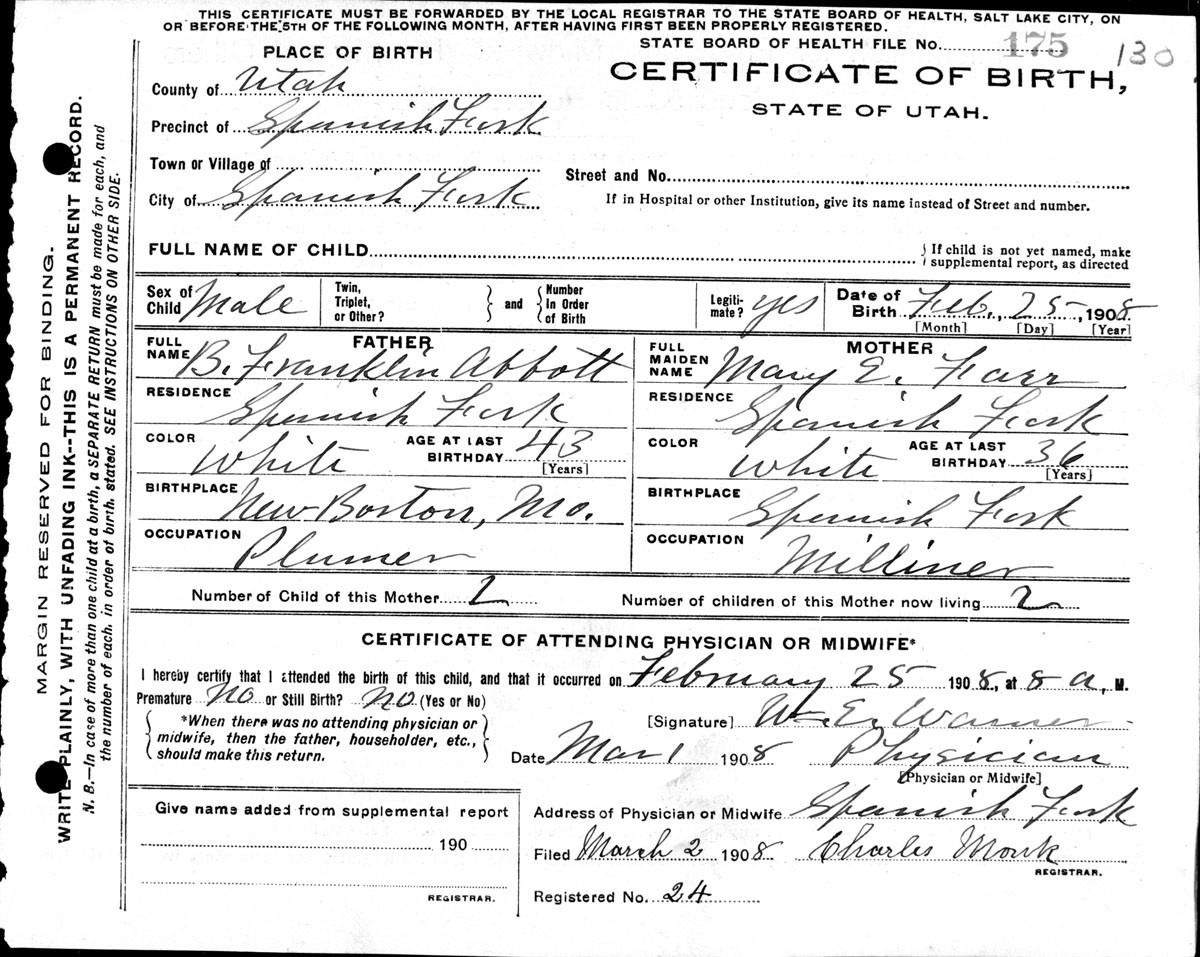 THIS CERTIFICATE MUST BE FORWARDED BY THE LOCAL REGISTRAR TO THE STATE BOARD OF HEALTH, SALT LAKE CITY, ON
OR BEFORE THE 5TH OF THE FOLLOWING MONTH, AFTER HAVING FIRST BEEN PROPERLY REGISTERED.
PLACE OF BIRTH
STATE BOARD OF HEALTH FILE No. 175 130
CERTIFICATE OF BIRTH,
STATE OF UTAH.
County of Utah
Precinct of Spanish Fork
Town or Village of
City of Spanish Fork
Street and No.
If in Hospital or other Institution, give its name instead of Street and number.
FULL NAME OF CHILD
} If child is not yet named, make
supplemental report, as directed
Sex of Child Male
Twin, Triplet, or Other? } and { Number In Order of Birth
Legiti- mate? yes
Date of Birth Feb. 25, 1908
[Month] [Day] [Year]
FATHER
FULL NAME B. Franklin Abbott
RESIDENCE Spanish Fork
COLOR White AGE AT LAST BIRTHDAY 43
[Years]
BIRTHPLACE New Boston, Mo.
OCCUPATION Plumer
MOTHER
FULL MAIDEN NAME Mary E. Farr
RESIDENCE Spanish Fork
COLOR White AGE AT LAST BIRTHDAY 36
[Years]
BIRTHPLACE Spanish Fork
OCCUPATION Milliner
Number of Child of this Mother 2 Number of children of this Mother now living 2
CERTIFICATE OF ATTENDING PHYSICIAN OR MIDWIFE*
I hereby certify that I attended the birth of this child, and that it occurred on February 25 1908, at 8 a, M.
Premature No or Still Birth? No (Yes or No)
{ *When there was no attending physician or
midwife, then the father, householder, etc.,
should make this return. }
[Signature] Wm. E. Warner
Date Mar 1 1908 Physician
[Physician or Midwife]
Give name added from supplemental report
190
REGISTRAR.
Address of Physician or Midwife Spanish Fork
Filed March 2 1908 Charles Monk
REGISTRAR.
Registered No. 24
MARGIN RESERVED FOR BINDING.
WRITE PLAINLY, WITH UNFADING INK--THIS IS A PERMANENT RECORD.
N. B.—In case of more than one child at a birth, a SEPARATE RETURN must be made for each, and
the number of each, in order of birth, stated. SEE INSTRUCTIONS ON OTHER SIDE.